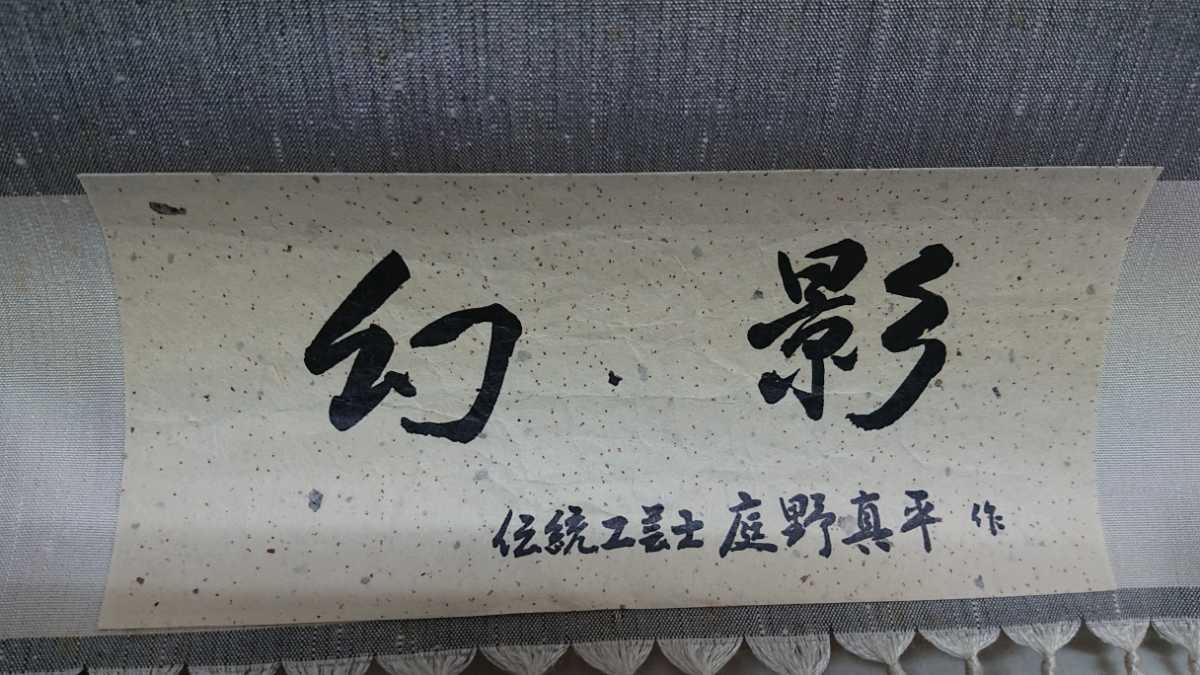 幻影
伝統工芸士 庭野真平 作